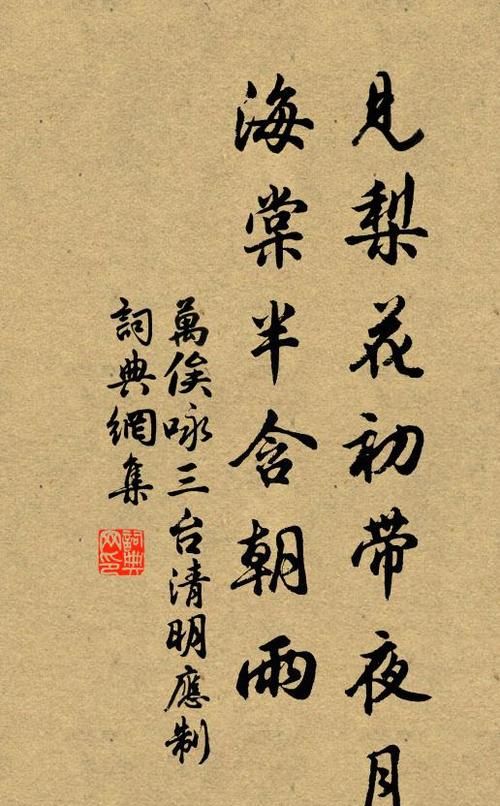 見梨花初帶夜月
海棠半含朝雨
萬俟咏三台清明應制
詞典網集
詞典
网印